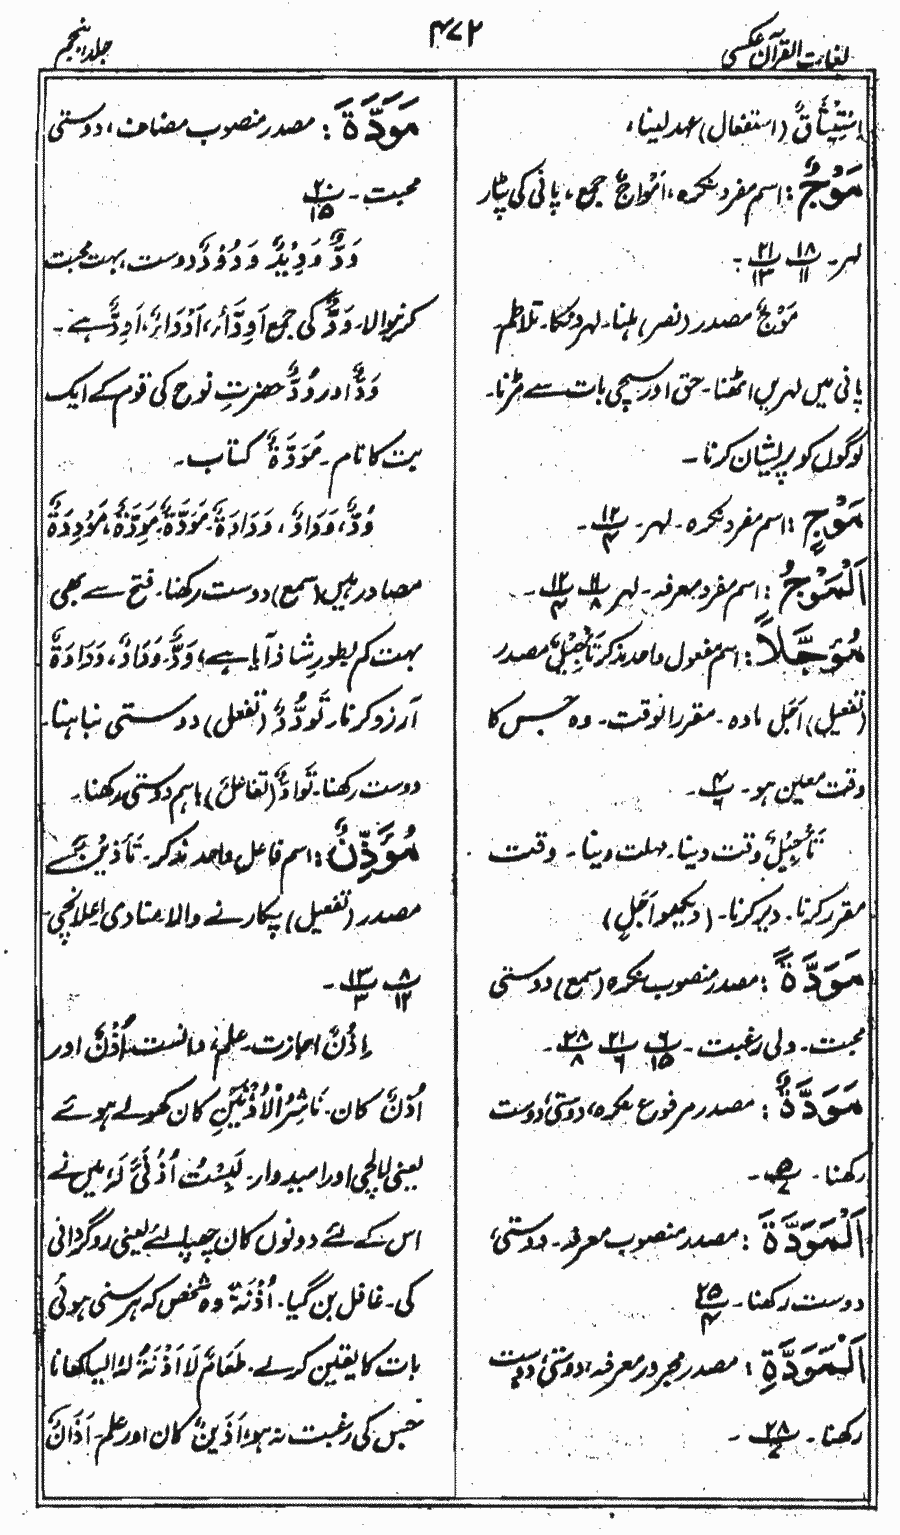 لغات القرآن عکسی
۴۷۲
جلد پنجم
اِسْتِیْثَاقٌ (استفعال) عہد لینا،
مَوْجٌ: اسم مفرد نکرہ، اَمْوَاجٌ جمع، پانی کی پٹار
لہر۔ ۱۸/۱۱ ۲۱/۱۳ ۔
مَوْجٌ مصدر (نصر) ہلنا۔ لہر دھکا۔ تلاطم
پانی میں لہریں اٹھنا۔ حق اور سچی بات سے مڑنا۔
لوگوں کو پریشان کرنا۔
مَوْجٍ: اسم مفرد نکرہ۔ لہر۔ ۱۲/۴ ۔
اَلْمَوْجُ: اسم مفرد معرفہ۔ لہر ۱۱/۸ ۱۲/۴ ۔
مُؤَجَّلًا: اسم مفعول واحد مذکر تَأْجِیْلٌ مصدر
(تفعیل) اَجَل مادہ۔ مقررالوقت۔ وہ جس کا
وقت معین ہو۔ ۴/۶ ۔
تَأْجِیْلٌ وقت دینا۔ مہلت دینا۔ وقت
مقرر کرنا۔ دیر کرنا۔ (دیکھو اَجَلٍ)
مَوَدَّةً: مصدر منصوب نکرہ (سمع) دوستی
محبت۔ دلی رغبت۔ ۶/۱۵ ۲۱/۶ ۲۸/۸ ۔
مَوَدَّةٌ: مصدر مرفوع نکرہ، دوستی، دوست
رکھنا۔ ۵/۷ ۔
اَلْمَوَدَّةَ: مصدر منصوب معرفہ۔ دوستی،
دوست رکھنا۔ ۲۵/۴
اَلْمَوَدَّةِ: مصدر مجرور معرفہ، دوستی، دوست
رکھنا۔ ۲۸/۷ ۔
مَوَدَّةَ: مصدر منصوب مضاف، دوستی
محبت۔ ۲۰/۱۵
وَدٌّ وَدِیْدٌ وَدُوْدٌ دوست، بہت محبت
کرنیوالا۔ وَدٌّ کی جمع اَوِدَّاءُ، اَوْدَادٌ، اَوِدٌّ ہے۔
وَدٌّ اور وُدٌّ حضرتِ نوح کی قوم کے ایک
بت کا نام۔ مَوَدَّةٌ کتاب۔
وُدٌّ، وَدَادٌ، وَدَادَةٌ۔ مَوَدَّةٌ، مَوِدَّةٌ، مَوْدِدَةٌ
مصادر ہیں (سمع) دوست رکھنا۔ فتح سے بھی
بہت کم بطورِ شاذ آیا ہے، وَدٌّ۔ وَدَادٌ، وَدَادَةٌ
آرزو کرنا۔ تَوَدُّدٌ (تفعل) دوستی نباہنا۔
دوست رکھنا۔ تَوَادٌّ (تفاعل) باہم دوستی رکھنا۔
مُؤَذِّنٌ: اسم فاعل واحد مذکر۔ تَأْذِیْنٌ جسے
مصدر (تفعیل) پکارنے والا منادی اعلانچی
۸/۱۲ ۱۳/۳ ۔
اِذْنٌ اجازت۔ علم، دانست اُذُنٌ اور
اُذْنٌ کان۔ نَاشِرُ الْاُذُنَیْنِ کان کھولے ہوئے
یعنی لالچی اور امیدوار۔ لَبِسْتُ اُذُنَیَّ لَہٗ میں نے
اس کے لئے دونوں کان چھپا لئے یعنی روگردانی
کی۔ غافل بن گیا۔ اُذُنَةٌ وہ شخص کہ ہر سنی ہوئی
بات کا یقین کرلے۔ طَعَامٌ لَا اَذَنَةَ لہٗ ایسا کھانا
جس کی رغبت نہ ہو، اَذَیْنٌ کان اور علم۔ اَذَانٌ